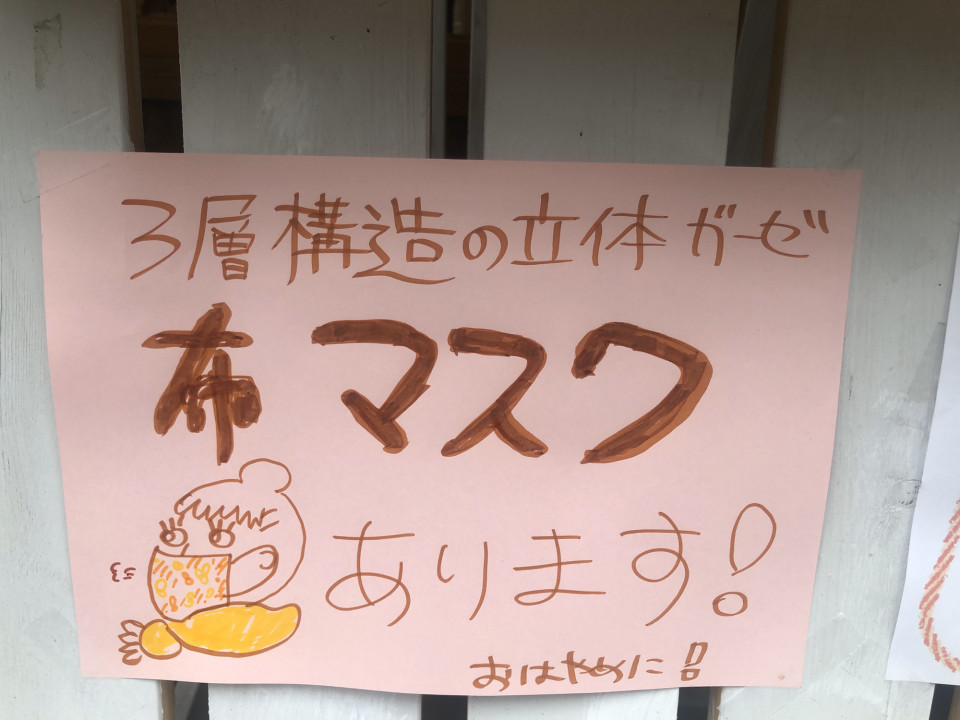 3層構造の立体ガーゼ
布マスク
あります!
おはやめに!!